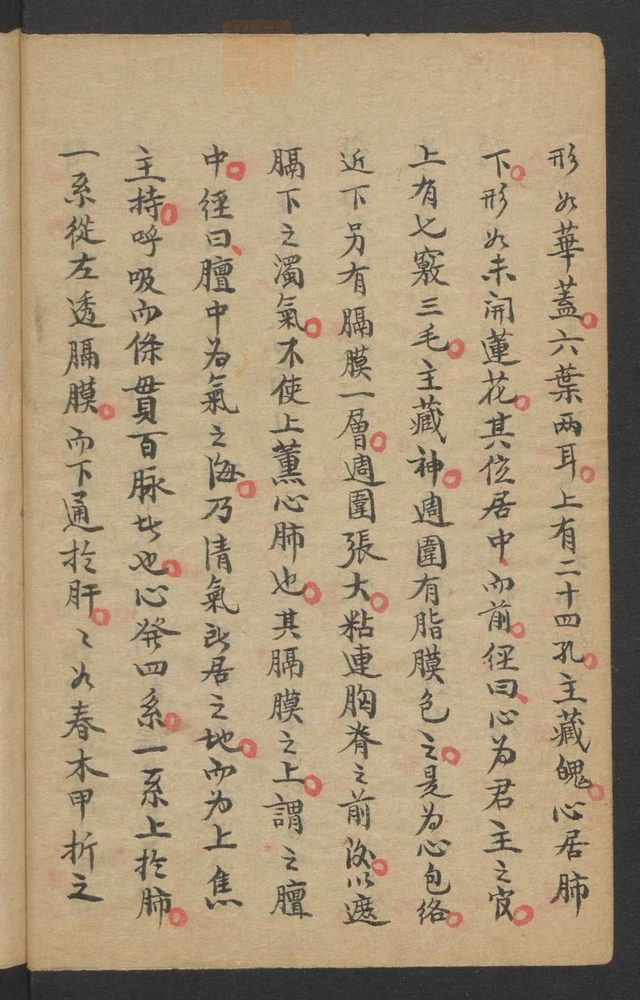 形如華蓋六葉兩耳上有二十四孔主藏魄心居肺
下形如未開蓮花其位居中而前經曰心為君主之官
上有七竅三毛主藏神週圍有脂膜包之是為心包絡
近下另有膈膜一層週圍張大粘連胸脊之前後以遮
膈下之濁氣不使上薰心肺也其膈膜之上謂之膻
中徑曰膻中為氣之海乃清氣所居之地而為上焦
主持呼吸而條貫百脉者也心發四系一系上於肺
一系從左透膈膜而下通於肝〻如春木甲折之